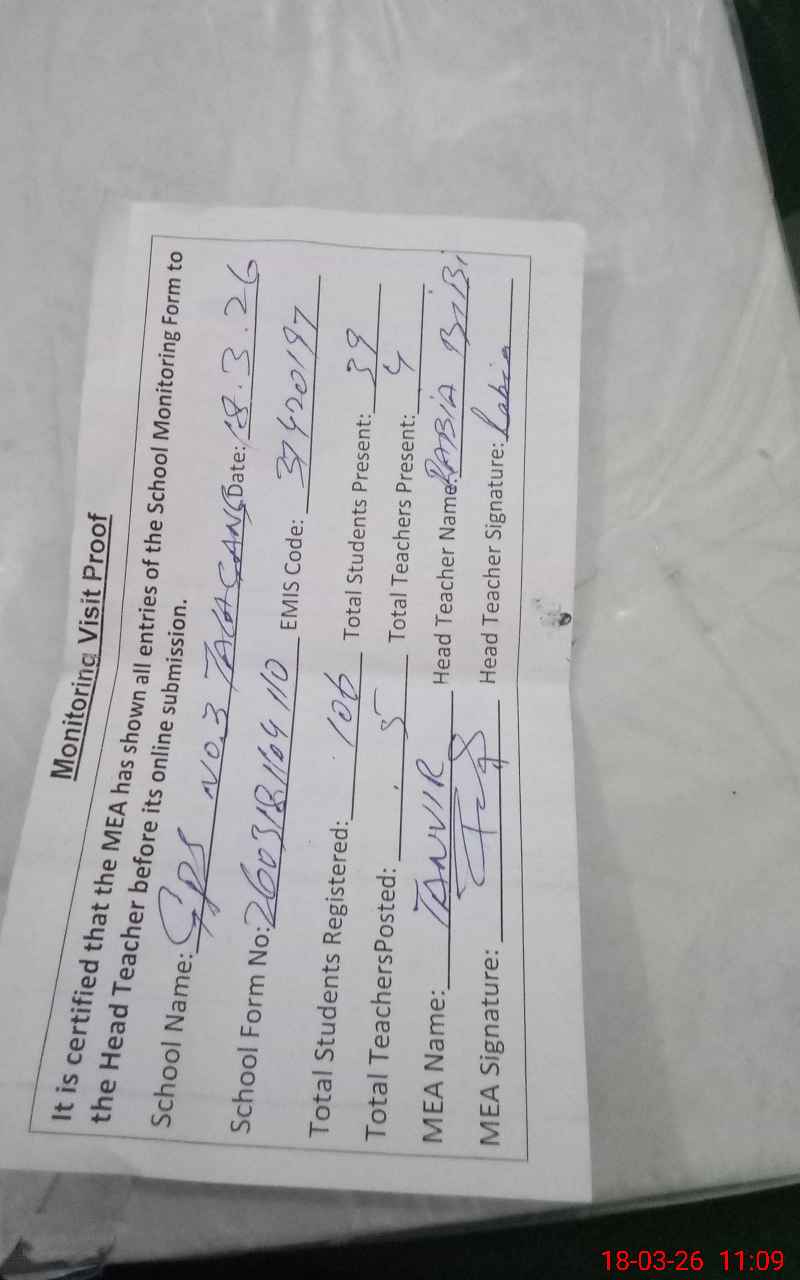 Monitoring Visit Proof
It is certified that the MEA has shown all entries of the School Monitoring Form to
the Head Teacher before its online submission.
School Name: GPS NO.3 TALAGANG Date: 18.3.26
School Form No: 2603181164110 EMIS Code: 37420197
Total Students Registered: 106 Total Students Present: 39
Total TeachersPosted: 5 Total Teachers Present: 4
MEA Name: TANVIR Head Teacher Name: RABIA BIBI
MEA Signature: Head Teacher Signature: Rabia
18-03-26 11:09